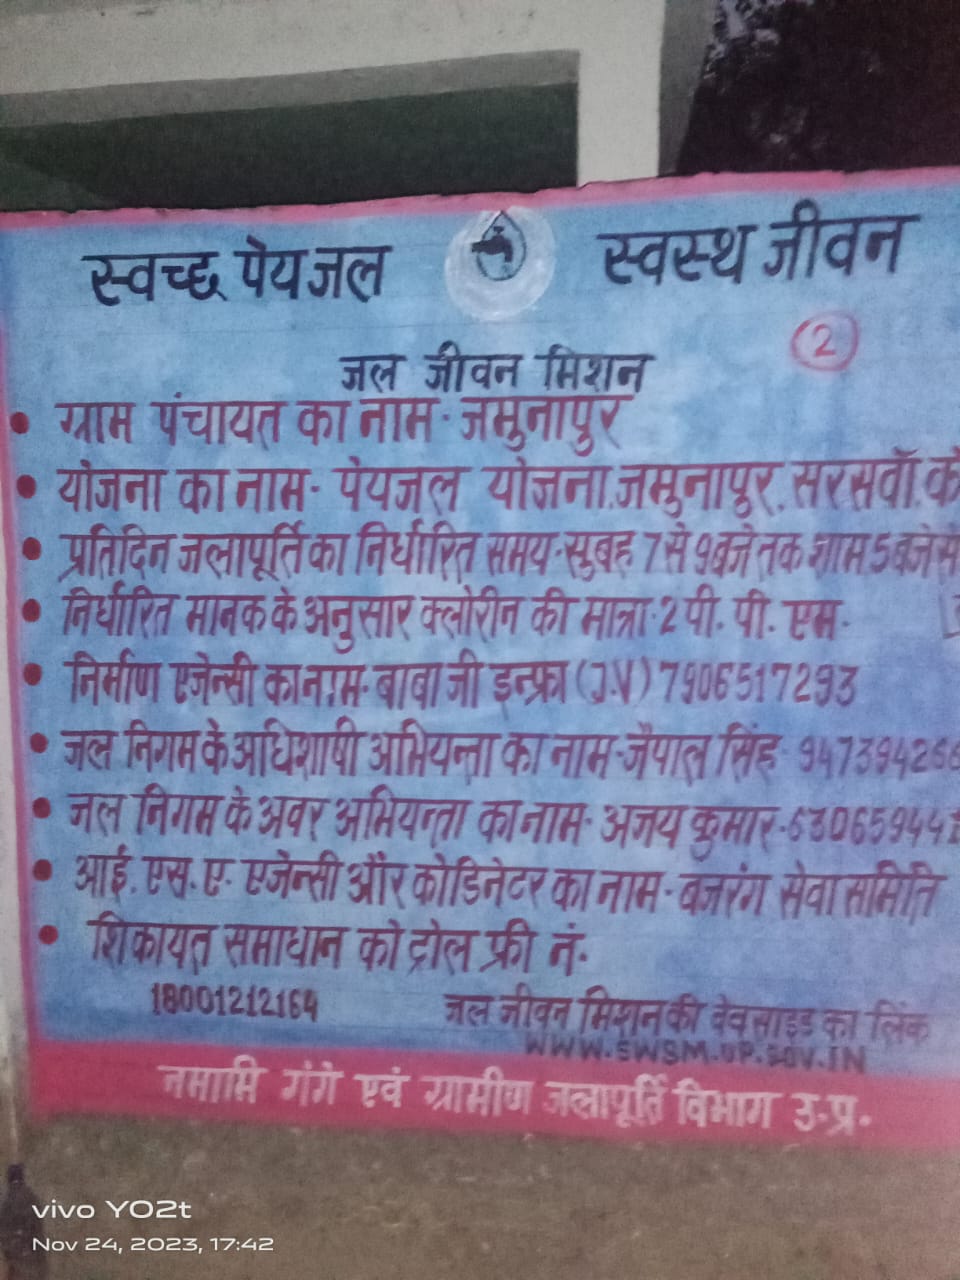 स्वच्छ पेयजल स्वस्थ जीवन
2
जल जीवन मिशन
• ग्राम पंचायत का नाम- जमुनापुर
• योजना का नाम- पेयजल योजना, जमुनापुर, सरसवाँ,
• प्रतिदिन जलापूर्ति का निर्धारित समय-सुबह 7 से 9 बजे तक शाम 5 बजे से
• निर्धारित मानक के अनुसार क्लोरीन की मात्रा- 2 पी. पी. एम-
• निर्माण एजेन्सी का नाम- बाबा जी इन्फ्रा (J.V) 7906517293
• जल निगम के अधिशाषी अभियन्ता का नाम-जैपाल सिंह- 947394266
• जल निगम के अवर अभियन्ता का नाम- अजय कुमार-63065944
• आई. एस. ए- एजेन्सी और कोडिनेटर का नाम- बजरंग सेवा समिति
• शिकायत समाधान को ट्रोल फ्री नं-
18001212164 जल जीवन मिशन की वेवसाइड का लिंक
WWW.SWSM-UP.GOV.IN
नमामि गंगे एवं ग्रामीण जलापूर्ति विभाग उ-प्र-
vivo Y02t
Nov 24, 2023, 17:42